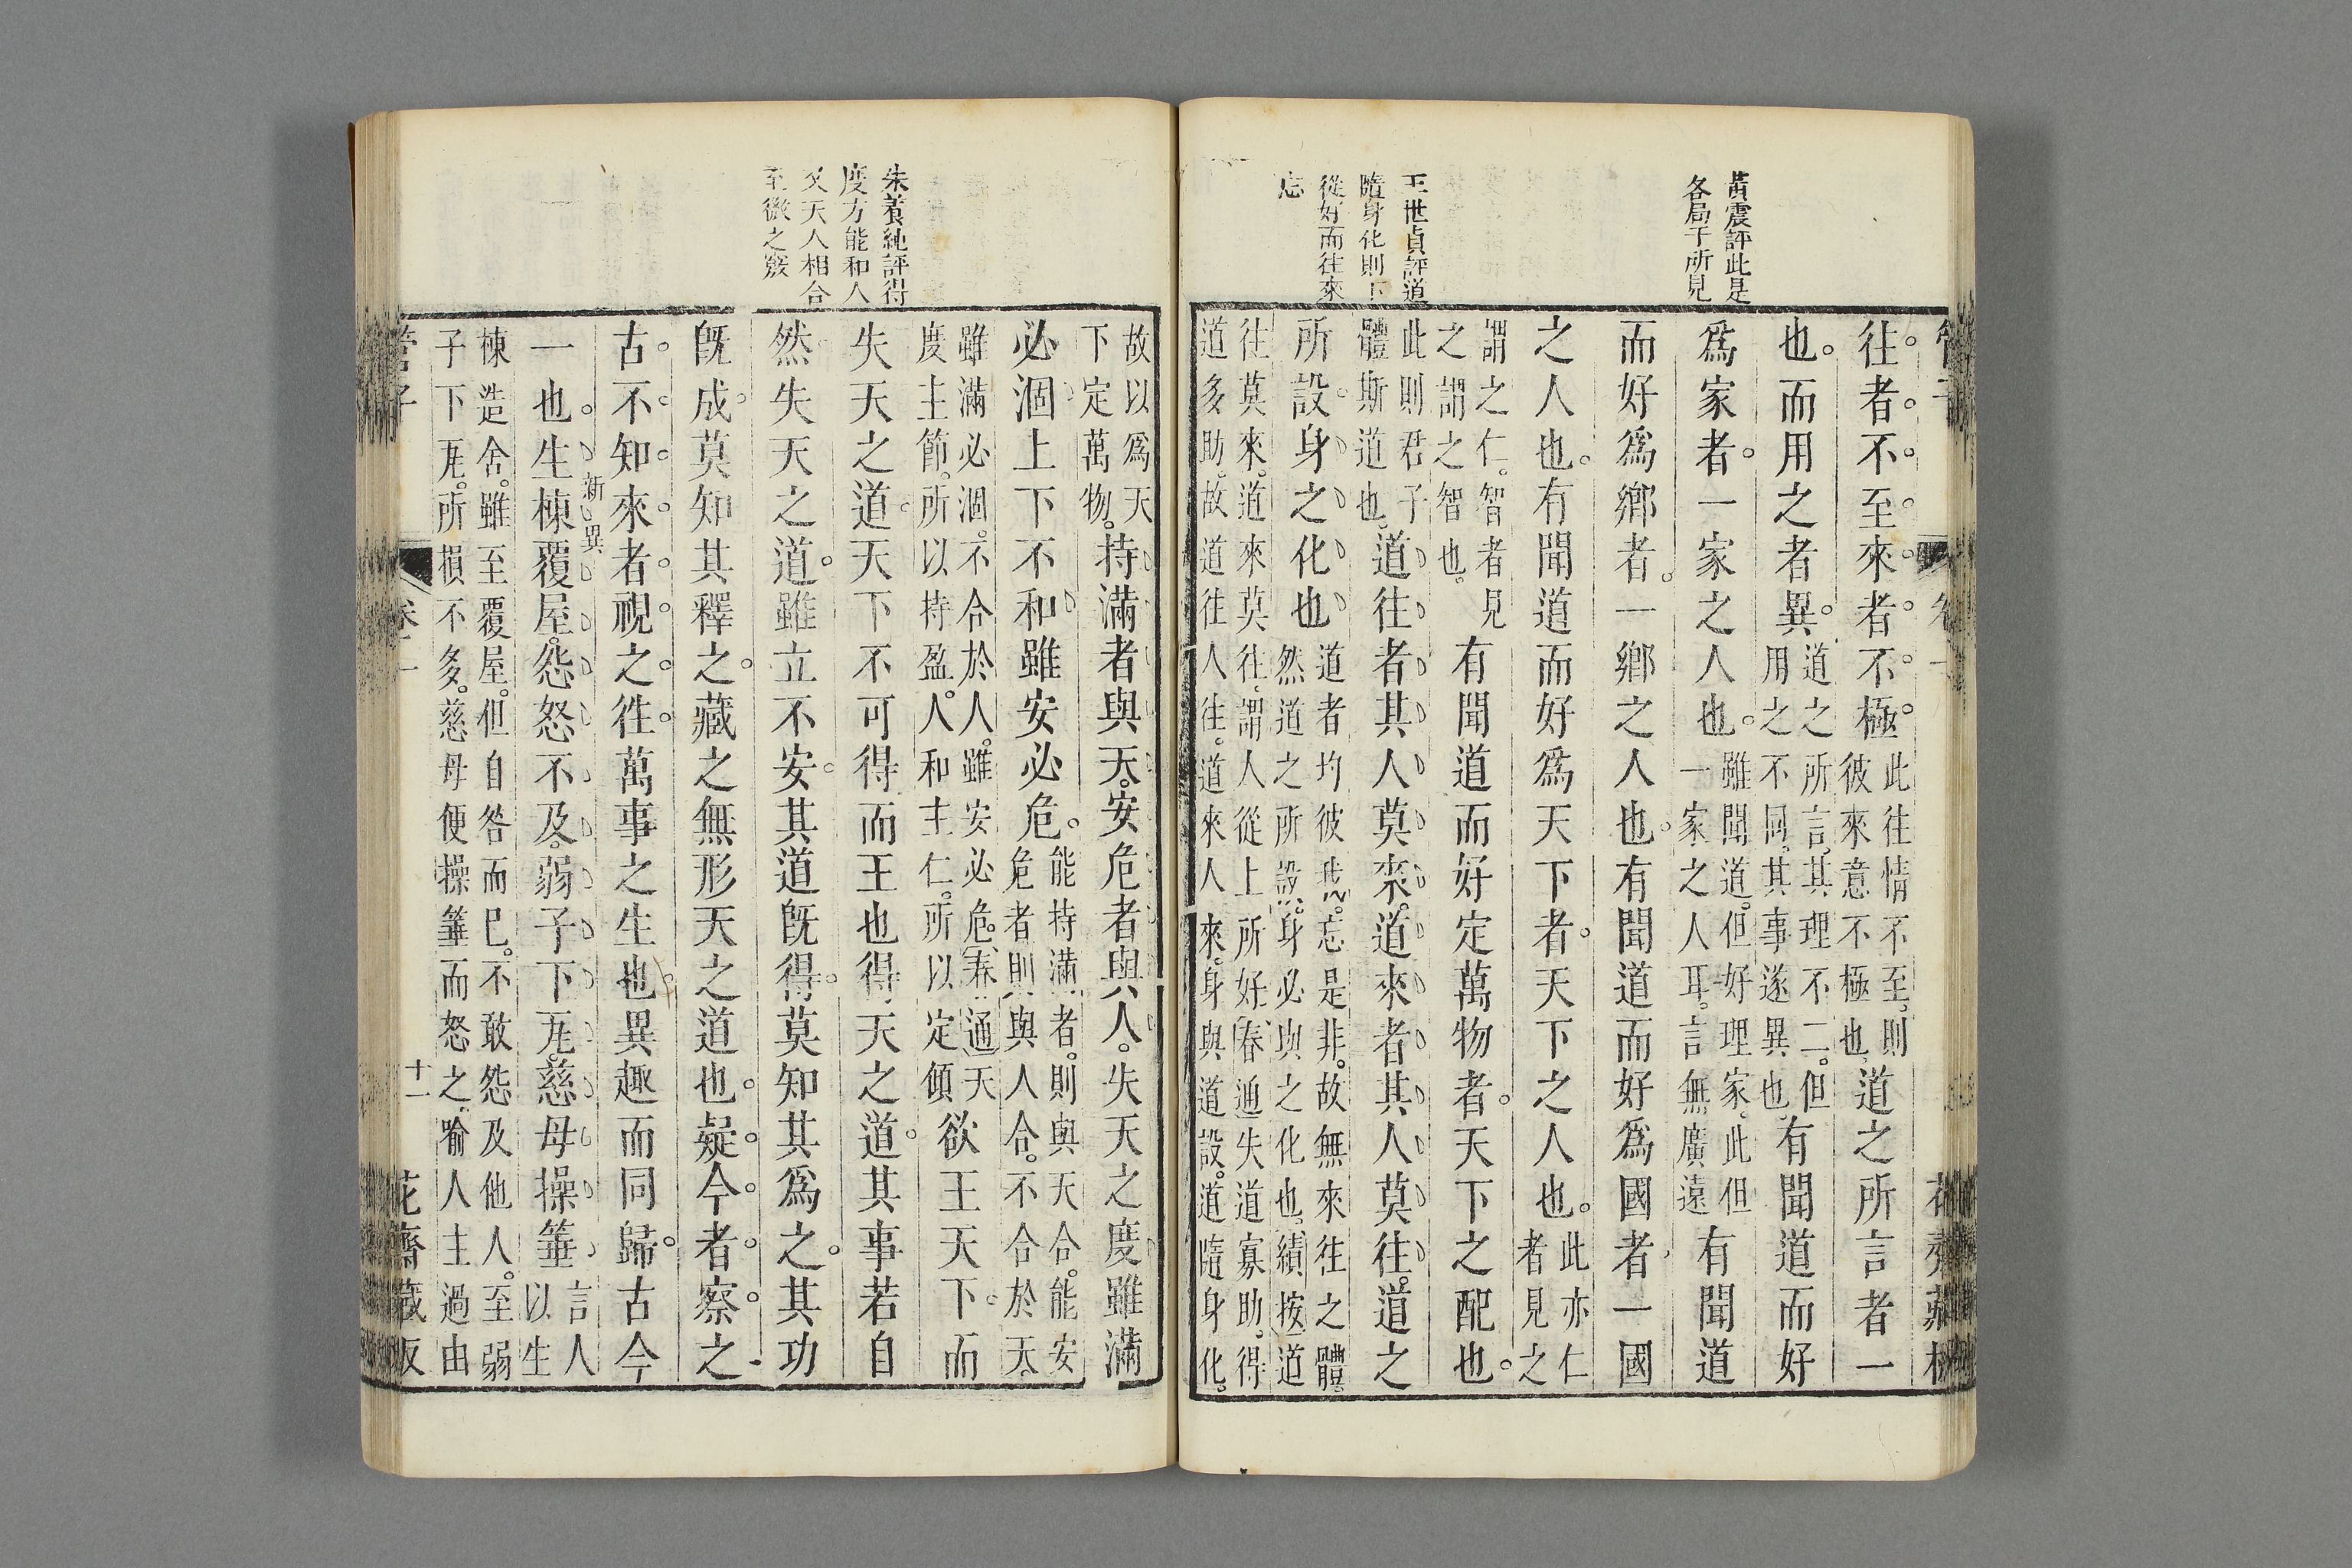 黃震評此是
各局于所見
王世貞評道
隨身化則下
從好而往來
忘
管子
卷一
花齋藏板
往者不至來者不極此往情不至則彼來意不極也道之所言者一
也而用之者異道之所言其理不二但用之不同其事遂異也有聞道而好
爲家者一家之人也雖聞道但好理家此但一家之人耳言無廣遠有聞道
而好爲鄉者一鄉之人也有聞道而好爲國者一國
之人也有聞道而好爲天下者天下之人也此亦仁者見之
謂之仁智者見之謂之智也有聞道而好定萬物者天下之配也
此則君子體斯道也道往者其人莫來道來者其人莫往道之
所設身之化也道者均彼我忘是非故無來往之體然道之所設身必與之化也績按道
往莫來道來莫往謂人從上所好春通失道寡助得道多助故道往人往道來人來身與道設道隨身化
朱養純評得
度方能和人
又天人相合
至微之竅
故以爲天下定萬物持滿者與天安危者與人失天之度雖滿
必涸上下不和雖安必危能持滿者則與天合能安危者則與人合不合於天
雖滿必涸不合於人雖安必危春通天度主節所以持盈人和主仁所以定傾欲王天下而
失天之道天下不可得而王也得天之道其事若自
然失天之道雖立不安其道旣得莫知其爲之其功
旣成莫知其釋之藏之無形天之道也疑今者察之
古不知來者視之徃萬事之生也異趣而同歸古今
一也生棟覆屋怨怒不及弱子下瓦慈母操箠言人以生
新異
棟造舍雖至覆屋但自咎而已不敢怨及他人至弱子下瓦所損不多慈母便操箠而怒之喻人主過由
管子
卷一
十一
花齋藏板